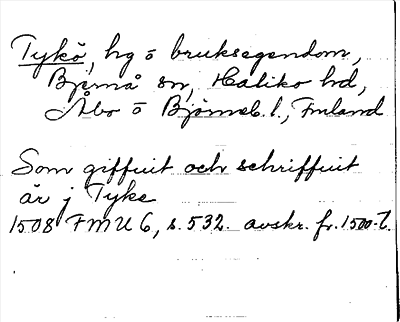 Tykö, hg o bruksegendom,
Bjärnå sn, Haliko hd,
Åbo o Björneb. l., Finland
Som giffuit och schriffuit
är j Tyke
1508 FMU 6, s. 532. avskr. fr. 1500-t.